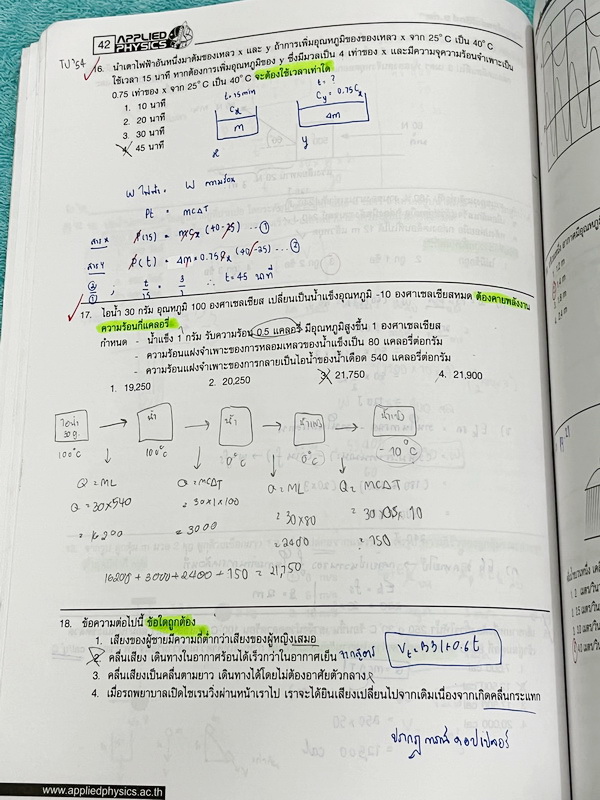 42 APPLIED PHYSICS
TU'54
16. นำเตาไฟฟ้าอันหนึ่งมาต้มของเหลว x และ y ถ้าการเพิ่มอุณหภูมิของของเหลว x จาก 25°C เป็น 40°C
ใช้เวลา 15 นาที หากต้องการเพิ่มอุณหภูมิของ y ซึ่งมีมวลเป็น 4 เท่าของ x และมีความจุความร้อนจำเพาะเป็น
0.75 เท่าของ x จาก 25°C เป็น 40°C จะต้องใช้เวลาเท่าใด
1. 10 นาที
2. 20 นาที
3. 30 นาที
4. 45 นาที
t=15min t= ?
Cx Cy = 0.75Cx
m 4m
x y
W ไฟฟ้า = W ความร้อน
Pt = mcΔT
สาร x P(15) = mCx (40-25) ... ①
สาร y P(t) = 4m×0.75Cx (40-25) ... ②
②/① ; t/15 = 3/1 ∴ t=45 นาที
17. ไอน้ำ 30 กรัม อุณหภูมิ 100 องศาเซลเซียส เปลี่ยนเป็นน้ำแข็งอุณหภูมิ -10 องศาเซลเซียสหมด ต้องคายพลังงาน
ความร้อนกี่แคลอรี่
กำหนด - น้ำแข็ง 1 กรัม รับความร้อน 0.5 แคลอรี่ มีอุณหภูมิสูงขึ้น 1 องศาเซลเซียส
- ความร้อนแฝงจำเพาะของการหลอมเหลวของน้ำแข็งเป็น 80 แคลอรี่ต่อกรัม
- ความร้อนแฝงจำเพาะของการกลายเป็นไอน้ำของน้ำเดือด 540 แคลอรี่ต่อกรัม
1. 19,250 2. 20,250 3. 21,750 4. 21,900
ไอน้ำ 30 g. → น้ำ → น้ำ → น้ำแข็ง → น้ำแข็ง
100°C 100°C 0°C 0°C -10°C
Q = ML Q = MCΔT Q = ML Q = MCΔT
Q = 30×540 = 30×1×100 = 30×80 = 30×0.5×10
= 16200 = 3000 = 2400 = 150
16200 + 3000 + 2400 + 150 = 21,750
18. ข้อความต่อไปนี้ ข้อใดถูกต้อง
1. เสียงของผู้ชายมีความถี่ต่ำกว่าเสียงของผู้หญิงเสมอ
2. คลื่นเสียง เดินทางในอากาศร้อนได้เร็วกว่าในอากาศเย็น จากสูตร Vt = 331+0.6t
3. คลื่นเสียงเป็นคลื่นตามยาว เดินทางได้โดยไม่ต้องอาศัยตัวกลาง
4. เมื่อรถพยาบาลเปิดไซเรนวิ่งผ่านหน้าเราไป เราจะได้ยินเสียงเปลี่ยนไปจากเดิมเนื่องจากเกิดคลื่นกระแทก
ปรากฏการณ์ดอปเปลอร์
www.appliedphysics.ac.th